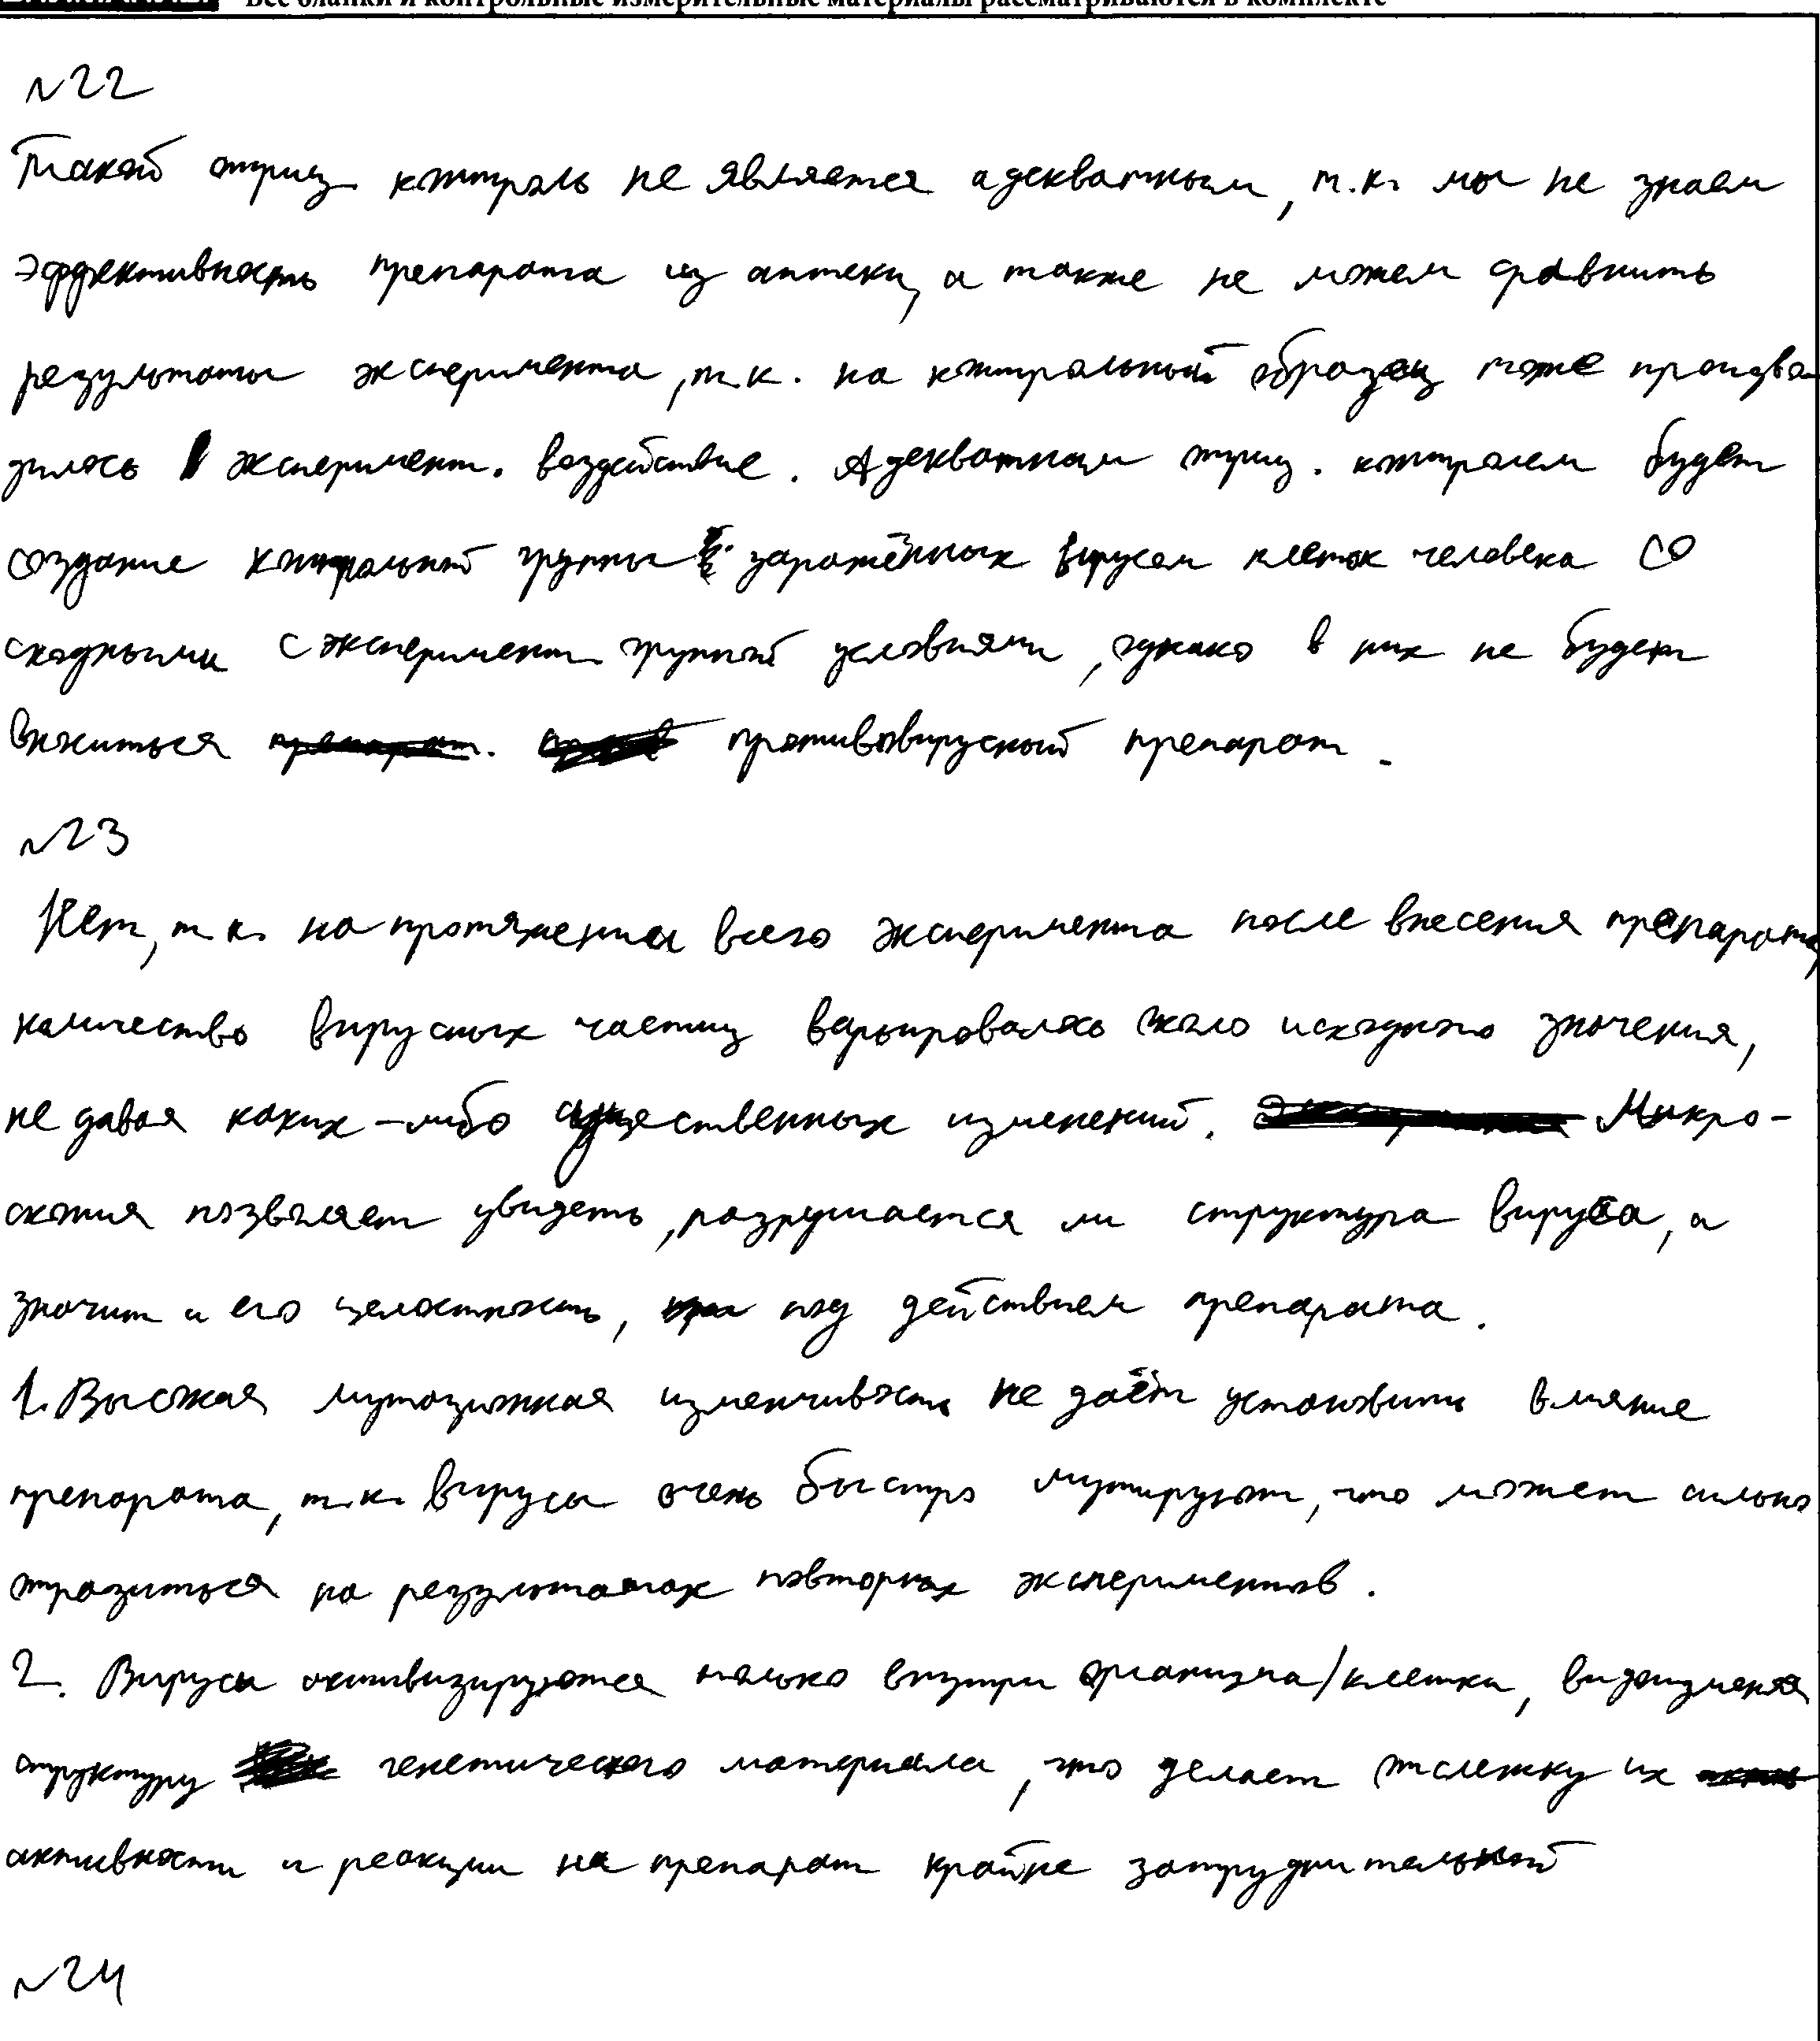 Все бланки и контрольные измерительные материалы рассматриваются в комплекте
№22
Такой отриц. контроль не является адекватным, т.к. мы не знаем
эффективность препарата из аптеки, а также не можем сравнить
результаты эксперимента, т.к. на контрольный образец тоже производ
дилось эксперимент. воздействие. Адекватным отриц. контролем будет
создание контрольной группы заражённых вирусом клеток человека со
сходными с эксперимент. группой условиями, однако в них не будет
вноситься противовирусный препарат.
№23
Нет, т.к. на протяжении всего эксперимента после внесения препарата,
количество вирусных частиц варьировалось около исходного значения,
не давая каких-либо существенных изменений. Микро-
скопия позволяет увидеть, разрушается ли структура вируса, а
значит и его целостность, под действием препарата.
1. Высокая мутационная изменчивость не даёт установить влияние
препарата, т.к. вирусы очень быстро мутируют, что может сильно
отразиться на результатах повторных экспериментов.
2. Вирусы активизируются только внутри организма/клетки, видоизменяя
структуру генетического материала, что делает отслежку их
активности и реакции на препарат крайне затруднительной
№24